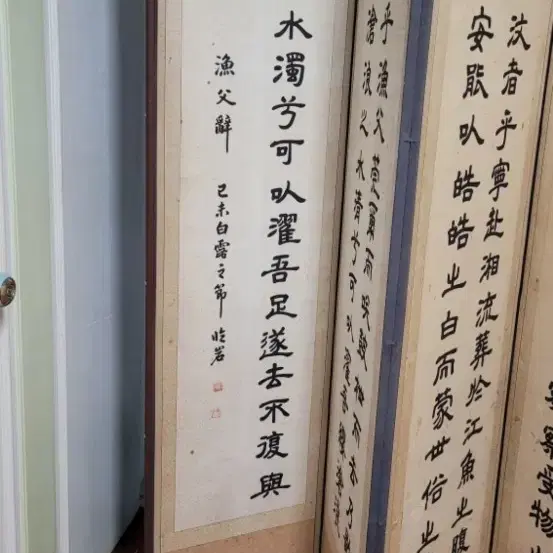 察受物
汶者乎寧赴湘流葬於江魚之
安能以皓皓之白而蒙世俗之
乎漁父莞爾而笑鼓枻而去乃
滄浪之水清兮可以濯吾纓滄浪
水濁兮可以濯吾足遂去不復與
漁父辭 己未白露之節